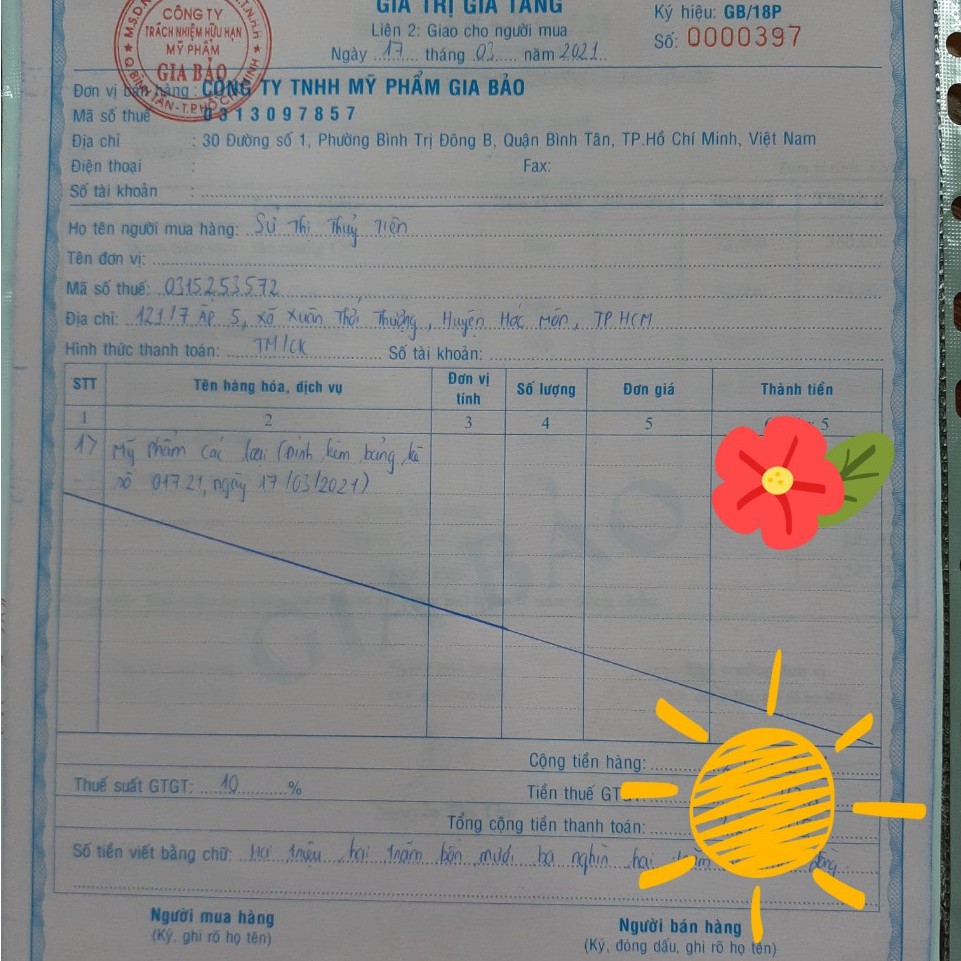 GIÁ TRỊ GIA TĂNG
Liên 2: Giao cho người mua
Ngày 17 tháng 03 năm 2021
Ký hiệu: GB/18P
Số: 0000397
CÔNG TY
TRÁCH NHIỆM HỮU HẠN
MỸ PHẨM
GIA BẢO
Q.BÌNH TÂN-T.P HỒ CHÍ MINH
Đơn vị bán hàng : CÔNG TY TNHH MỸ PHẨM GIA BẢO
Mã số thuế 0313097857
Địa chỉ : 30 Đường số 1, Phường Bình Trị Đông B, Quận Bình Tân, TP.Hồ Chí Minh, Việt Nam
Điện thoại : Fax:
Số tài khoản :
Họ tên người mua hàng: Sử Thị Thuỷ Tiên
Tên đơn vị:
Mã số thuế: 0315253572
Địa chỉ: 121/7 Ấp 5, Xã Xuân Thới Thượng, Huyện Hóc Môn, TP HCM
Hình thức thanh toán: TM/CK Số tài khoản:
STT Tên hàng hóa, dịch vụ Đơn vị tính Số lượng Đơn giá Thành tiền
1 2 3 4 5 5
1) Mỹ phẩm các loại (Đính kèm bảng kê
số 017.21, ngày 17/03/2021)
GIA BẢO
Cộng tiền hàng:
Thuế suất GTGT: 10 % Tiền thuế
Tổng cộng tiền thanh toán:
Số tiền viết bằng chữ: Hai triệu hai trăm bốn mươi ba nghìn hai trăm đồng
Người mua hàng
(Ký, ghi rõ họ tên)
Người bán hàng
(Ký, đóng dấu, ghi rõ họ tên)